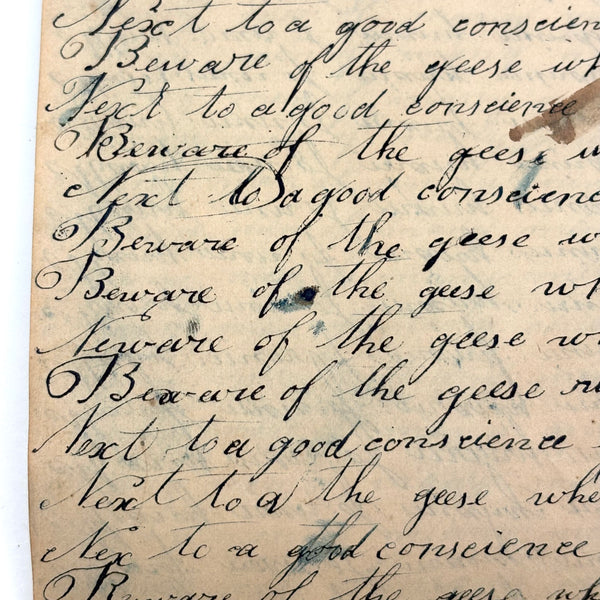 Next to a good conscien
Beware of the geese wh
Next to a good conscience
Beware of the geese w
Next to a good conscienc
Beware of the geese w
Beware of the geese wh
Neware of the geese wh
Beware of the geese
Next to a good conscience
Next to a the geese whe
Nex to a good conscience
Beware of the geese wh